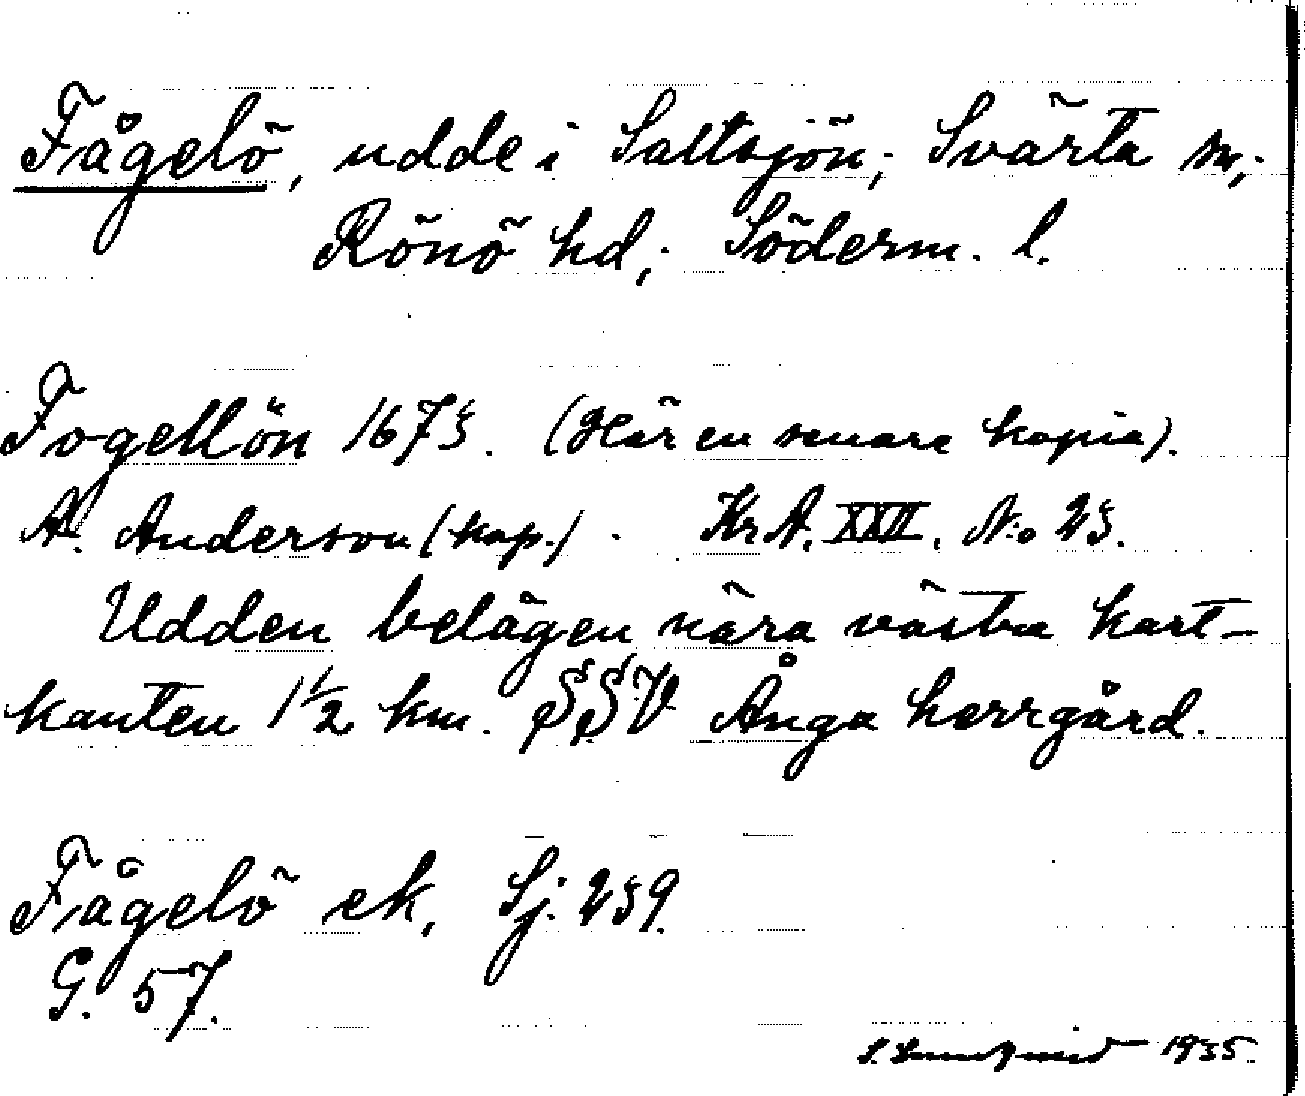 Fågelö, udde i Saltsjön; Svärta sn;
Rönö hd; Söderm. l.
Fogellön 1673. (Här en senare kopia).
A. Anderson (kop.). Kr A. XXII. N:o 23.
Udden belägen nära västra kart-
kanten 1½ km. SSV Ånga herrgård.
Fågelö ek. Sj. 239.
G. 57.
1935.